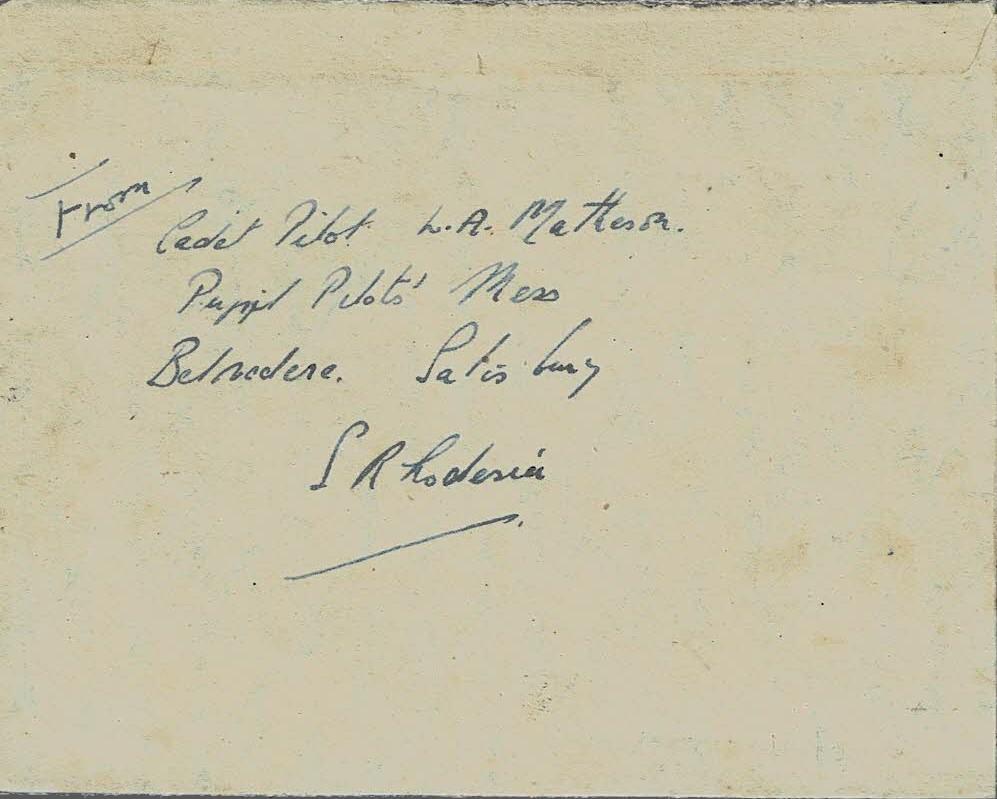 From
Cadet Pilot L.A. Matheson.
Pupil Pilots' Mess
Belvedere. Salisbury
S Rhodesia